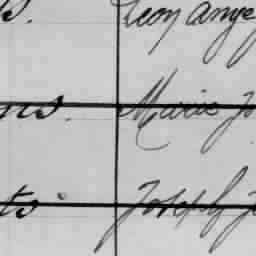 s. Leon Ange
ns. Marie Jo
ts Joseph J